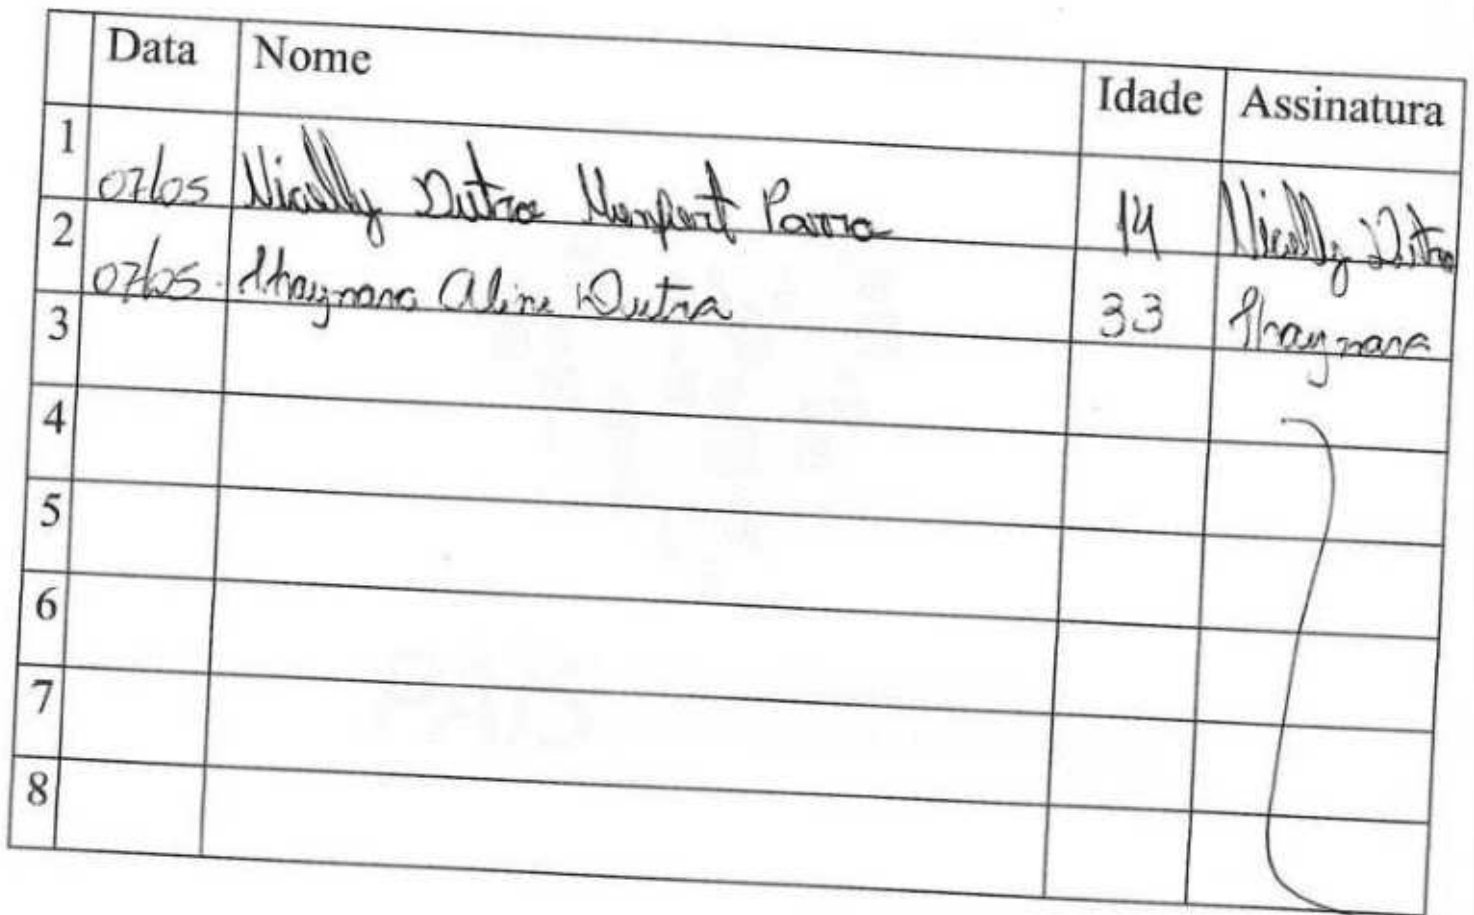 Data Nome Idade Assinatura
1 07/05 Nicolly Dutra Parra 14 Nicolly Dutra
2 07/05 Thaynara Aline Dutra 33 Thaynara
3
4
5
6
7
8